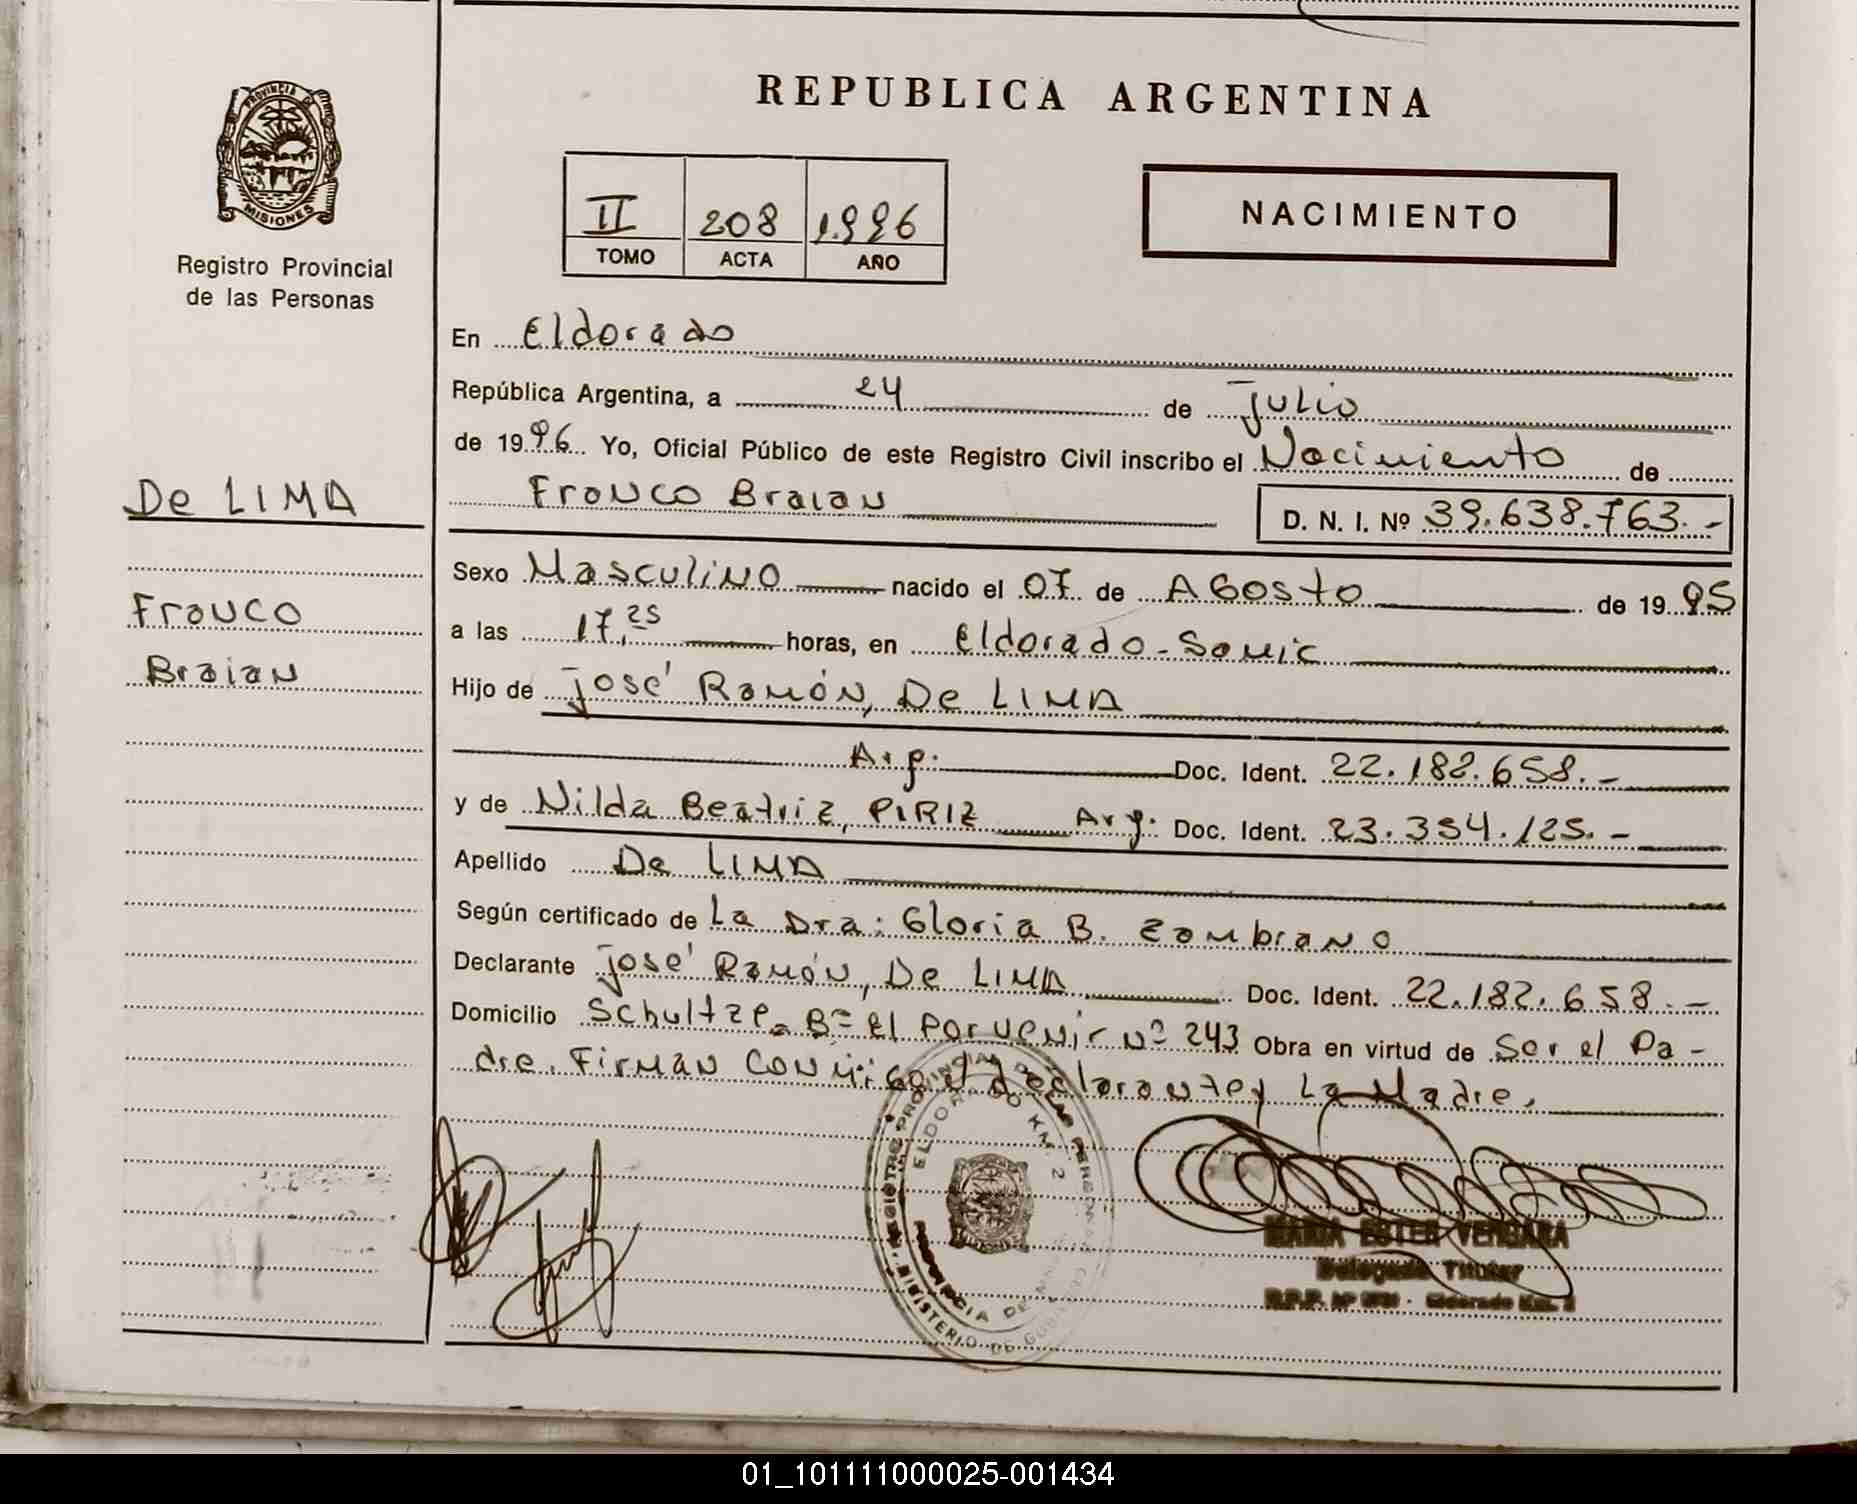 REPUBLICA ARGENTINA
PROVINCIA DE
MISIONES
Registro Provincial
de las Personas
II 208 1.996
TOMO ACTA AÑO
NACIMIENTO
En Eldorado
República Argentina, a 24 de julio
de 1996 Yo, Oficial Público de este Registro Civil inscribo el Nacimiento de
Franco Braian D. N. I. Nº 39.638.763.-
De LIMA
Franco
Braian
Sexo Masculino nacido el 07 de Agosto de 1995
a las 17,25 horas, en Eldorado - Samic
Hijo de José Ramón, De LIMA
Arg. Doc. Ident. 22.182.658.-
y de Nilda Beatriz, PIRIZ Arg. Doc. Ident. 23.354.125.-
Apellido De LIMA
Según certificado de La Dra: Gloria B. Zambrano
Declarante José Ramón, De LIMA Doc. Ident. 22.182.658.-
Domicilio Schultze - Bº El Porvenir Nº 243 Obra en virtud de Ser el Pa-
dre. Firman Conmigo el declarante y La Madre.
REGISTRO PROVINCIAL DE LAS PERSONAS
ELDORADO KM. 2
PROVINCIA DE
MINISTERIO DE GOBIERNO
MARIA ESTER VERGARA
Delegada Titular
Eldorado Km. 2
01_101111000025-001434